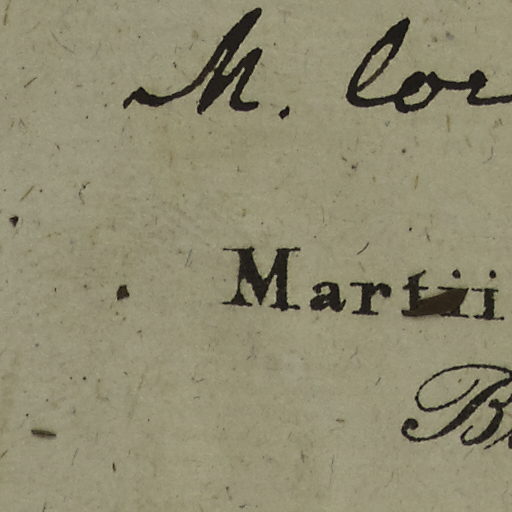 M. cor
Martii
B